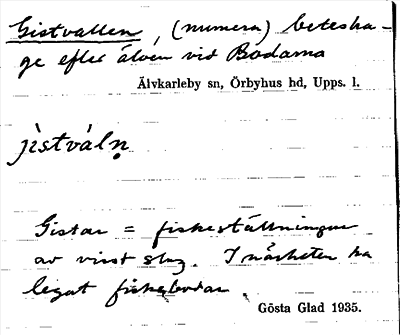 Gistvallen, (numera) betesha-
ge efter älven vid Bodarna
Älvkarleby sn, Örbyhus hd, Upps. l.
jìstváln̥
Gistar = fiskeställningar
av visst slag. I närheten ha
legat fiskebodar.
Gösta Glad 1935.